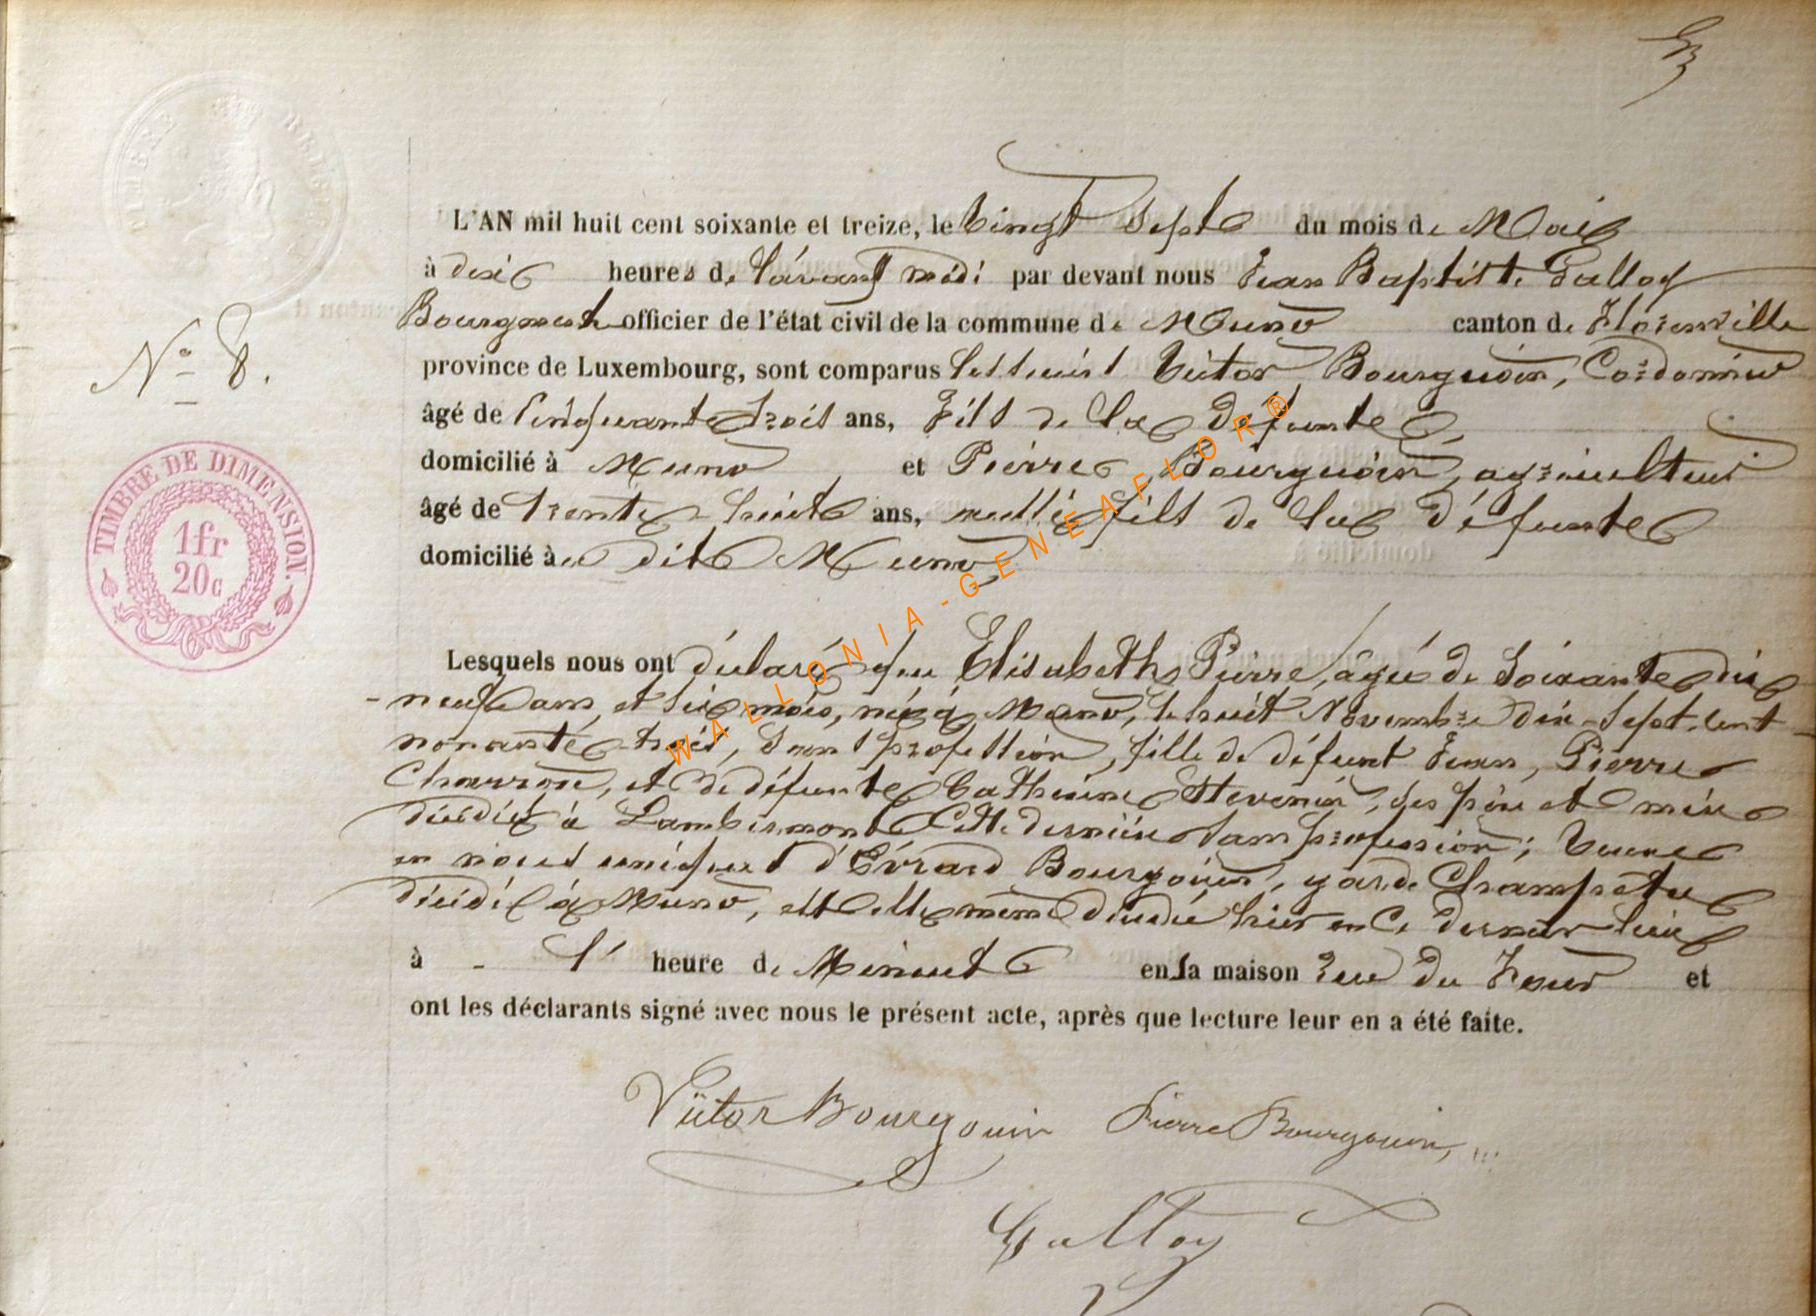 L'AN mil huit cent soixante et treize, le Vingt Sept du mois de Mai
à dix heures de l'avant midi par devant nous Jean Baptiste Galloy
Bourgmestre officier de l'état civil de la commune de Muno canton de Florenville
N° 8.
province de Luxembourg, sont comparus Victor Bourguoin, Cordonnier
âgé de Cinquante trois ans, Fils de la défunte
domicilié à Muno et Pierre Bourguoin, agriculteur
âgé de trente huit ans, aussi fils de la défunte
domicilié à dit Muno
TIMBRE DE DIMENSION.
1fr
20c
Lesquels nous ont déclaré que Elisabeth Pierre, agée de Soixante dix
- neuf ans et six mois, née à Muno, le huit Novembre dix-sept-cent-
nonante-trois, sans profession, fille de défunt Jean, Pierre
Charron, et de défunte Catherine Stevenin, ses père et mère
décédés à Lambermont Cette dernière sans profession; Veuve
en noces uniques d'Évrard Bourgouin, garde Champêtre
décédé à Muno, est elle même décédée hier en Ce dernier lieu
à - l' heure de Minuit en sa maison rue du Four et
ont les déclarants signé avec nous le présent acte, après que lecture leur en a été faite.
Victor Bourgouin Pierre Bourgouin,
Galloy
WALLONIA-GENEAFLOR®